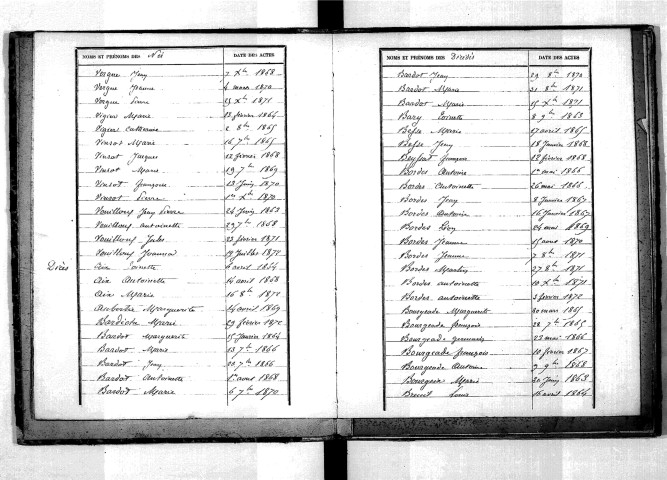 NOMS ET PRÉNOMS DES Nés DATE DES ACTES
Vergne Jean 7 Xbre 1868
Vergne Jeanne 4 mars 1870
Vergne Pierre 23 Xbre 1871
Vigier Marie 13 février 1864
Vigier Catherine 2 8bre 1865
Vinsot Marie 16 7bre 1865
Vinsot Jacques 12 février 1868
Vinsot Marie 19 7bre 1869
Vinsot Françoise 13 Juin 1870
Vinsot Pierre 1er Xbre 1870
Vouillons Jean Pierre 24 Juin 1863
Vouillons Antoinette 29 7bre 1868
Vouillons Jules 23 février 1871
Vouillons Joanna 19 Juillet 1872
Décès
Aix Toinette 6 avril 1864
Aix Antoinette 14 avril 1868
Aix Marie 16 8bre 1872
Marguerite 24 avril 1869
Marie 29 février 1872
Bardot Marguerite 15 Janvier 1864
Bardot Marie 13 7bre 1866
Bardot Jean 20 7bre 1866
Bardot Antoinette 1er avril 1868
Bardot Marie 6 7bre 1870
NOMS ET PRÉNOMS DES Décédés DATE DES ACTES
Bardot Jean 29 8bre 1870
Bardot Marie 31 8bre 1871
Bardot Marie 15 Xbre 1871
Bary Toinette 8 9bre 1863
Besse Marie 17 avril 1865
Besse Jean 18 Janvier 1868
Françoise 22 février 1868
Bordes Antoine 1er mai 1866
Bordes Antoinette 26 mai 1866
Bordes Jean 8 Janvier 1867
Bordes Antoine 16 Janvier 1867
Bordes Léon 24 mai 1869
Bordes Jeanne 15 avril 1870
Bordes Jeanne 7 8bre 1871
Bordes Martin 27 8bre 1871
Bordes Antoinette 10 Xbre 1871
Bordes Antoinette 3 février 1872
Bourgeade Marguerite 30 mars 1865
Bourgeade François 28 7bre 1865
Bourgeade 22 mai 1866
Bourgeade François 10 février 1867
Bourgeade Antoine 7 9bre 1868
Marie 20 Juin 1863
Louis 16 avril 1864